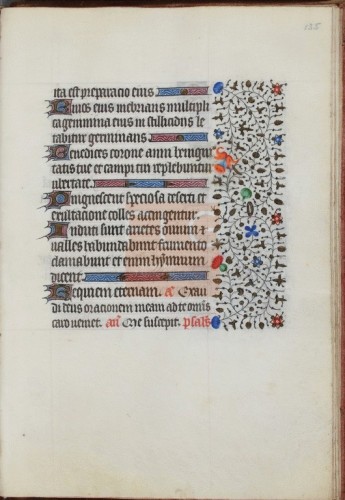 135
ita est preparacio eius
Riuos eius inebrians multipli
ca genimina eius in stillicidiis le
tabitur germinans
Benedices corone anni benigni
tatis tue et campi tui replebuntur
ubertate
Pinguescent speciosa deserti et
exultacione colles accingentur.
Induti sunt arietes ouium et
ualles habundabunt frumento
clamabunt et enim hymnum
dicent
Requiem eternam. ℟ Exau
di deus orationem meam ad te omnis
caro ueniet. an̄ Me suscepit. psalm̄